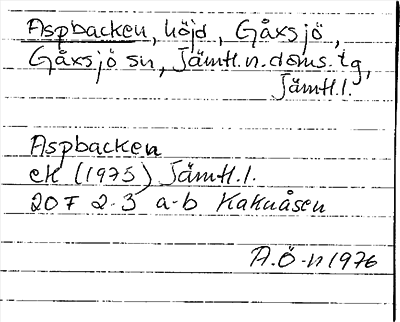 Aspbacken, höjd, Gåxsjö,
Gåxsjö sn, Jämtl.n.doms.tg,
Jämtl.l.
Aspbacken
ek (1975) Jämtl.l.
20F 2-3 a-b Kakuåsen
A.Ö-n 1976